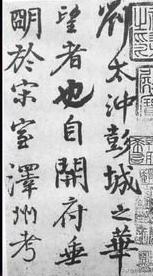 劉太沖彭城之華
望者也自開府垂
明於宋室澤州考